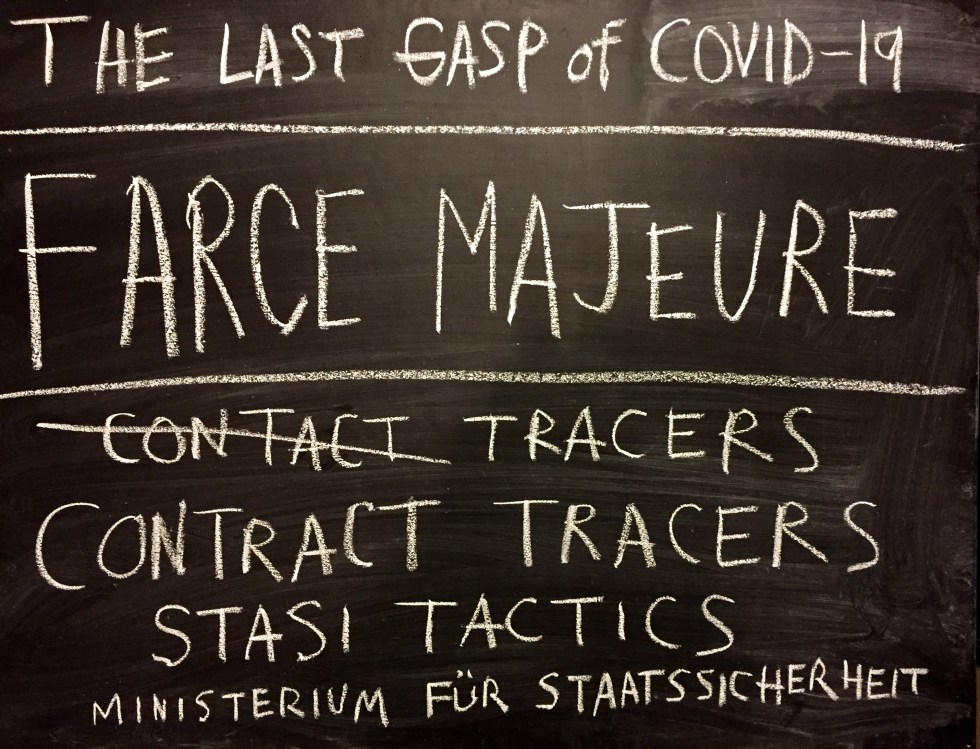 THE LAST GASP of COVID-19
FARCE MAJEURE
CONTACT TRACERS
CONTRACT TRACERS
STASI TACTICS
MINISTERIUM FÜR STAATSSICHERHEIT